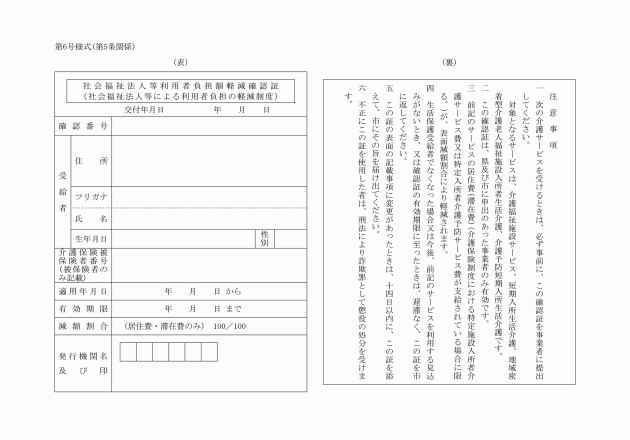 第6号様式（第5条関係）
（表）
社会福祉法人等利用者負担額軽減確認証
（社会福祉法人等による利用者負担の軽減制度）
交付年月日　　年　　月　　日
確認番号
受給者
住所
フリガナ
氏名
生年月日
性別
介護保険被
保険者番号
（被保険者の
み記載）
適用年月日　　年　　月　　日 から
有効期限　　年　　月　　日 まで
減額割合　（居住費・滞在費のみ） 100／100
発行機関名
及び印
（裏）
注意事項
一　次の介護サービスを受けるときは、必ず事前に、この確認証を事業者に提出
してください。
対象となるサービスは、介護福祉施設サービス、短期入所生活介護、地域密
着型介護老人福祉施設入所者生活介護、介護予防短期入所生活介護です。
二　この確認証は、県及び市に申出のあった事業者のみ有効です。
三　前記のサービスの居住費（滞在費）（介護保険制度における特定施設入所者介
護サービス費又は特定入所者介護予防サービス費が支給されている場合に限
る。）が、表面減額割合により軽減されます。
四　生活保護受給者でなくなった場合又は今後、前記のサービスを利用する見込
みがないとき、又は確認証の有効期限に至ったときは、遅滞なく、この証を市
に返してください。
五　この証の表面の記載事項に変更があったときは、十四日以内に、この証を添
えて、市にその旨を届け出てください。
六　不正にこの証を使用した者は、刑法により詐欺罪として懲役の処分を受けま
す。